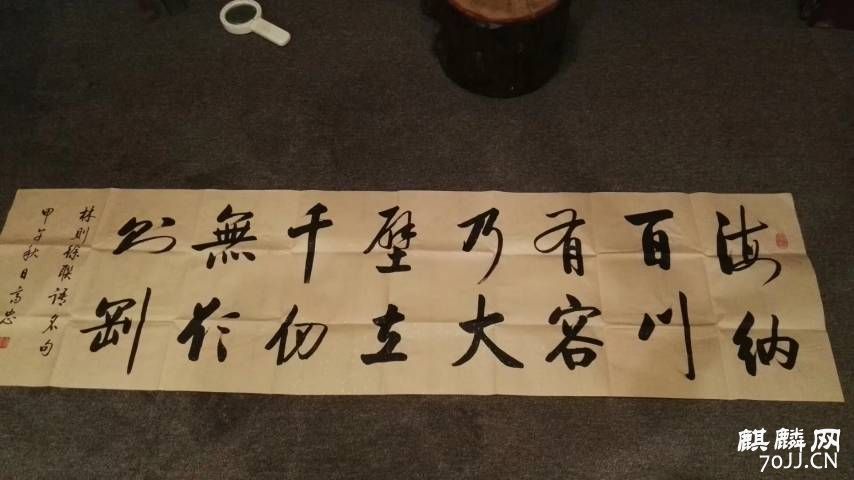 海纳
百川
有容
乃大
壁立
千仞
無欲
则剛
林则徐联语名句
甲午秋日高忠
麒麟网
70JJ.CN